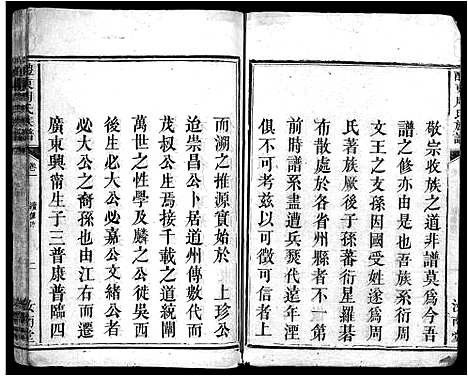 敬宗收族之道非譜莫爲今吾
譜之修亦由是也吾族系衍周
文王之支孫因國受姓遂爲周
氏著族厥後子孫蕃衍星羅碁
布散處於各省州縣者不一第
前時譜系盡遭兵燹代遠年湮
俱不可考矣
而溯之推源貧始於 上珍公
迨崇昌公卜居道州傳數代而
茂叔公生焉接千載之道統闡
萬世之性學及麟之公仕吳西
後生必嘉公文緒公者
必大公之裔孫也由江右而遷
廣東興甯生子三普康普臨四
醴東周氏族譜
卷一
一
汝南堂